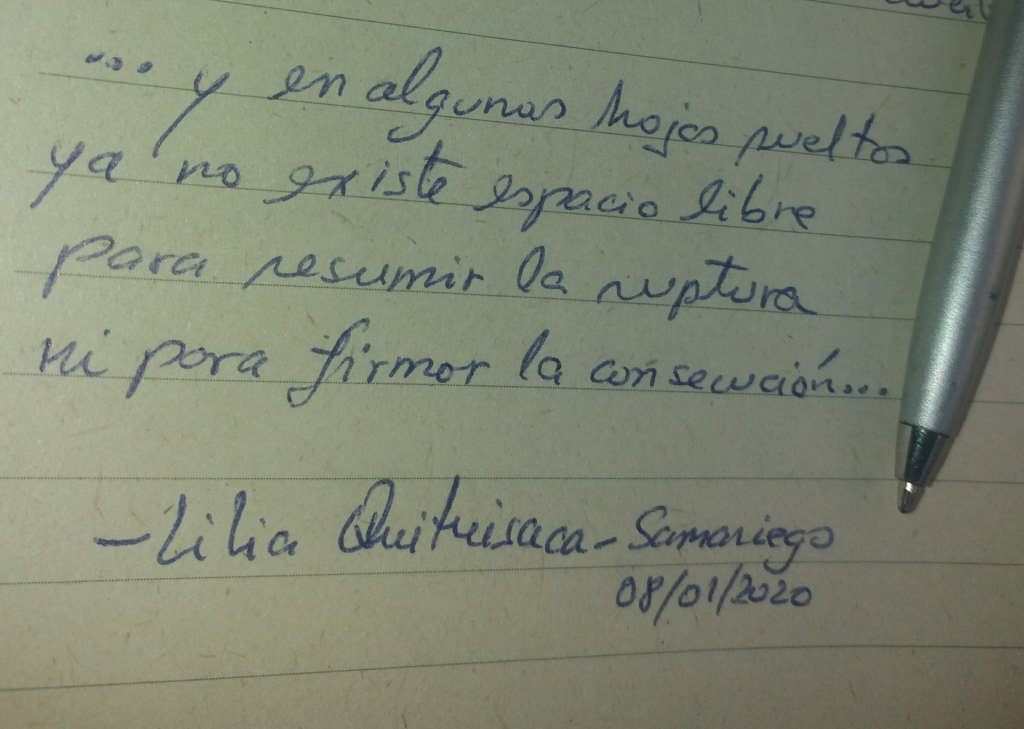 ... y en algunas hojas sueltas
ya no existe espacio libre
para resumir la ruptura
ni para firmar la consecución...
-Lilia Quituisaca-Samaniego
08/01/2020